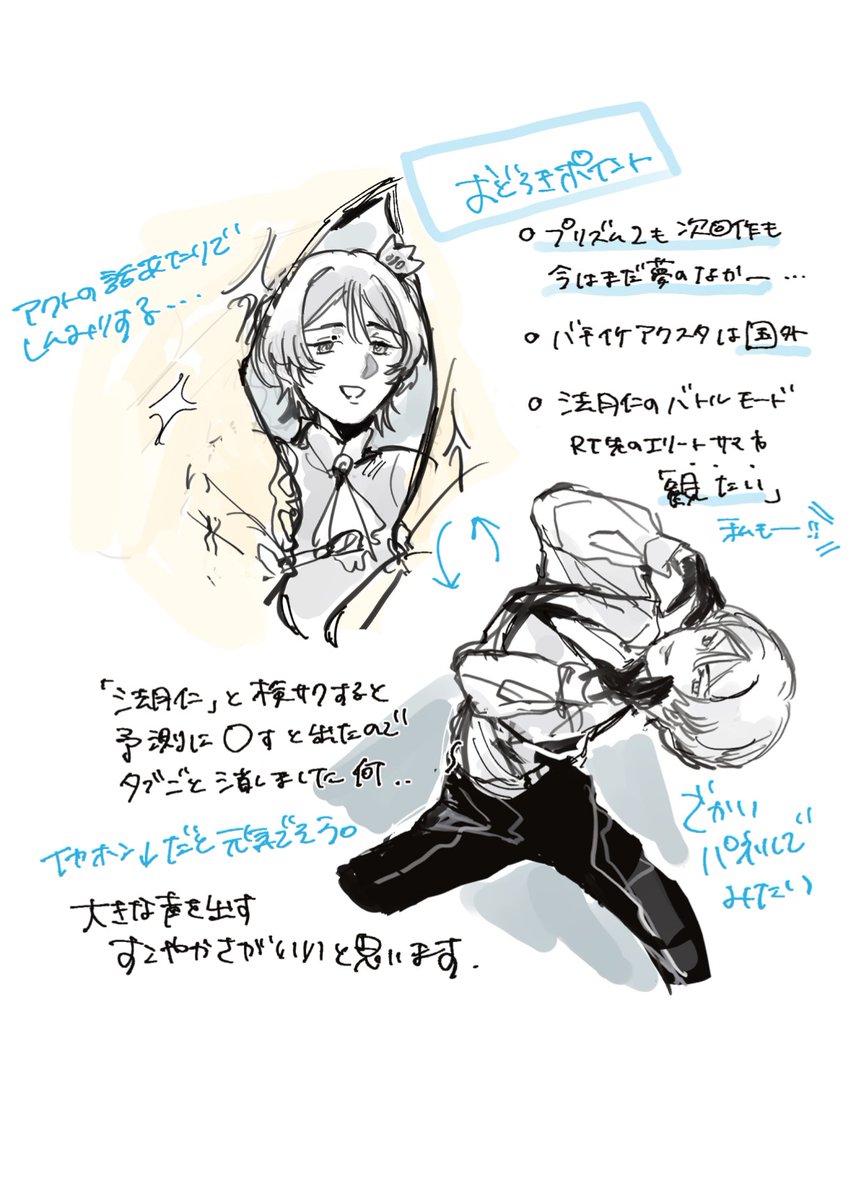 おどろきポイント
プリズム2も次回作も
今はまだ夢のなかー…
バチイケアクスタは国外
法月仁のバトルモード
RT先のエリートサマ方
「観たい」
私もー!!
アクトの話来たりで
しんみりする...
「法月仁」と検サクすると
予測に〇すと出たので
タブごと消しました何..
イヤホン↓だと元気でそう。
大きな声を出す
すこやかさがいいと思います.
でかい
パネルで
みたい